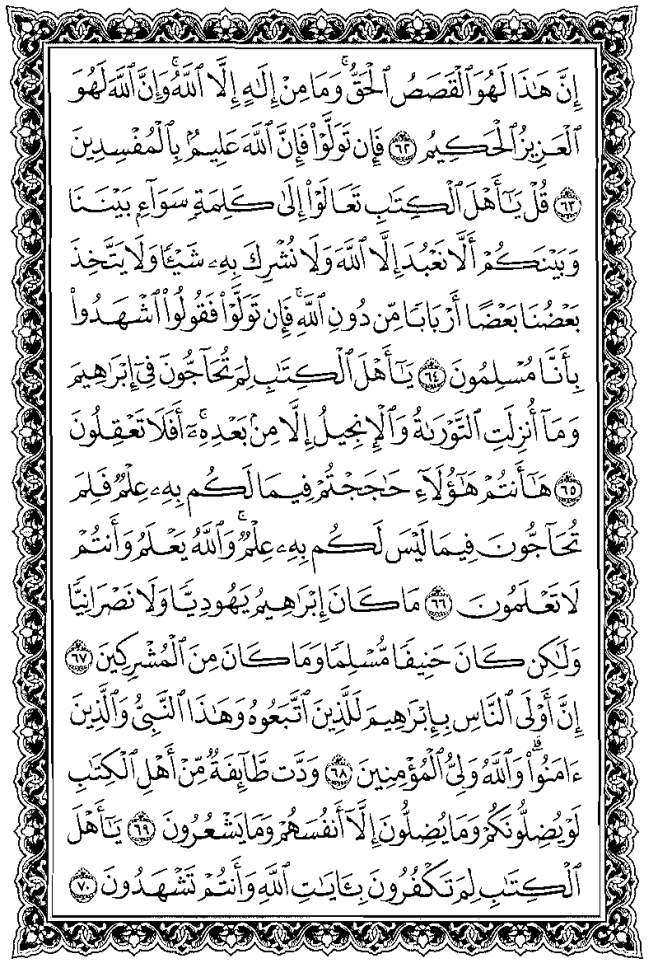 إِنَّ هَٰذَا لَهُوَ ٱلْقَصَصُ ٱلْحَقُّ ۚ وَمَا مِنْ إِلَٰهٍ إِلَّا ٱللَّهُ ۚ وَإِنَّ ٱللَّهَ لَهُوَ
ٱلْعَزِيزُ ٱلْحَكِيمُ ٦٢ فَإِن تَوَلَّوْا۟ فَإِنَّ ٱللَّهَ عَلِيمٌۢ بِٱلْمُفْسِدِينَ
٦٣ قُلْ يَٰٓأَهْلَ ٱلْكِتَٰبِ تَعَالَوْا۟ إِلَىٰ كَلِمَةٍ سَوَآءٍۭ بَيْنَنَا
وَبَيْنَكُمْ أَلَّا نَعْبُدَ إِلَّا ٱللَّهَ وَلَا نُشْرِكَ بِهِۦ شَيْـًٔا وَلَا يَتَّخِذَ
بَعْضُنَا بَعْضًا أَرْبَابًا مِّن دُونِ ٱللَّهِ ۚ فَإِن تَوَلَّوْا۟ فَقُولُوا۟ ٱشْهَدُوا۟
بِأَنَّا مُسْلِمُونَ ٦٤ يَٰٓأَهْلَ ٱلْكِتَٰبِ لِمَ تُحَآجُّونَ فِىٓ إِبْرَٰهِيمَ
وَمَآ أُنزِلَتِ ٱلتَّوْرَىٰةُ وَٱلْإِنجِيلُ إِلَّا مِنۢ بَعْدِهِۦٓ ۚ أَفَلَا تَعْقِلُونَ
٦٥ هَٰٓأَنتُمْ هَٰٓؤُلَآءِ حَٰجَجْتُمْ فِيمَا لَكُم بِهِۦ عِلْمٌ فَلِمَ
تُحَآجُّونَ فِيمَا لَيْسَ لَكُم بِهِۦ عِلْمٌ ۚ وَٱللَّهُ يَعْلَمُ وَأَنتُمْ
لَا تَعْلَمُونَ ٦٦ مَا كَانَ إِبْرَٰهِيمُ يَهُودِيًّا وَلَا نَصْرَانِيًّا
وَلَٰكِن كَانَ حَنِيفًا مُّسْلِمًا وَمَا كَانَ مِنَ ٱلْمُشْرِكِينَ ٦٧
إِنَّ أَوْلَى ٱلنَّاسِ بِإِبْرَٰهِيمَ لَلَّذِينَ ٱتَّبَعُوهُ وَهَٰذَا ٱلنَّبِىُّ وَٱلَّذِينَ
ءَامَنُوا۟ ۗ وَٱللَّهُ وَلِىُّ ٱلْمُؤْمِنِينَ ٦٨ وَدَّت طَّآئِفَةٌ مِّنْ أَهْلِ ٱلْكِتَٰبِ
لَوْ يُضِلُّونَكُمْ وَمَا يُضِلُّونَ إِلَّآ أَنفُسَهُمْ وَمَا يَشْعُرُونَ ٦٩ يَٰٓأَهْلَ
ٱلْكِتَٰبِ لِمَ تَكْفُرُونَ بِـَٔايَٰتِ ٱللَّهِ وَأَنتُمْ تَشْهَدُونَ ٧٠